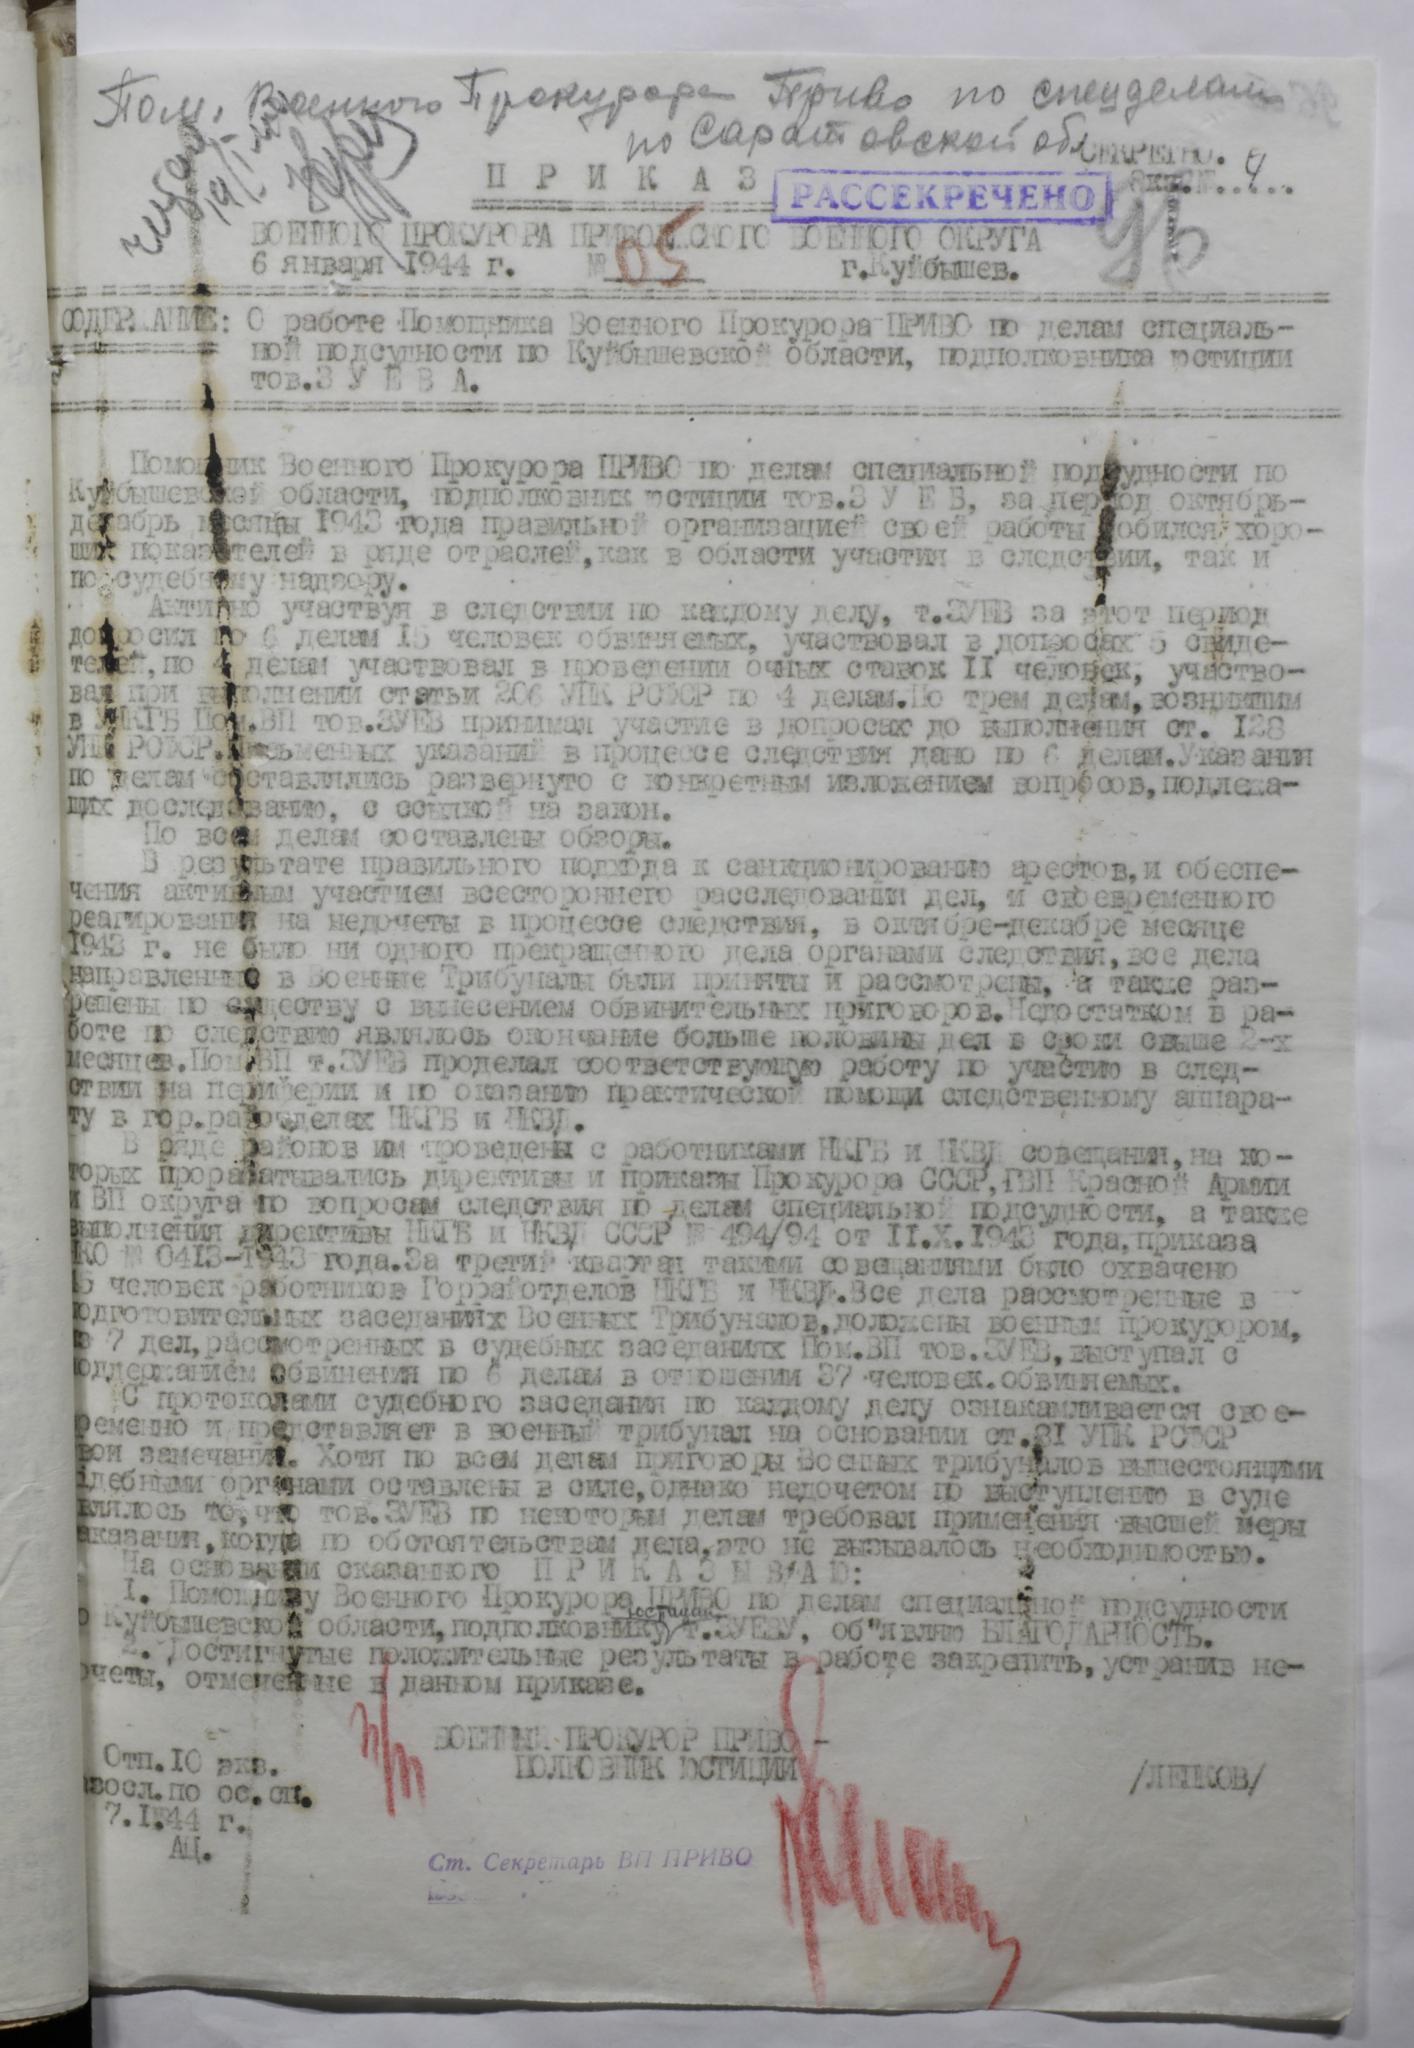 Пом. Военного Прокурора Приво по спецделам
по Саратовской обл
СЕКРЕТНО.
П Р И К А З
Экз.№ 4
РАССЕКРЕЧЕНО
ВОЕННОГО ПРОКУРОРА ПРИВОЛЖСКОГО ВОЕННОГО ОКРУГА
6 января 1944 г. № 05 г.Куйбышев.
СОДЕРЖАНИЕ: О работе Помощника Военного Прокурора ПРИВО по делам специаль-
ной подсудности по Куйбышевской области, подполковника юстиции
тов.З У Е В А.
Помощник Военного Прокурора ПРИВО по делам специальной подсудности по
Куйбышевской области, подполковник юстиции тов.З У Е В, за период октябрь-
декабрь месяцы 1943 года правильной организацией своей работы добился хоро-
ших показателей в ряде отраслей,как в области участия в следствии, так и
по судебному надзору.
Активно участвуя в следствии по каждому делу, т.ЗУЕВ за этот период
допросил по 6 делам 15 человек обвиняемых, участвовал в допросах 5 свиде-
телей,по 4 делам участвовал в проведении очных ставок II человек, участво-
вал при выполнении статьи 206 УПК РСФСР по 4 делам.По трем делам,возникшим
в УНКГБ Пом.ВП тов.ЗУЕВ принимал участие в допросах до выполнения ст. 128
УПК РСФСР.Письменных указаний в процессе следствия дано по 6 делам.Указания
по делам составлялись развернуто с конкретным изложением вопросов,подлежа-
щих доследованию, с ссылкой на закон.
По всем делам составлены обзоры.
В результате правильного подхода к санкционированию арестов,и обеспе-
чения активным участием всестороннего расследования дел, и своевременного
реагирования на недочеты в процессе следствия, в октябре-декабре месяце
1943 г. не было ни одного прекращенного дела органами следствия,все дела
направленные в Военные Трибуналы были приняты и рассмотрены, а также раз-
решены по существу с вынесением обвинительных приговоров.Недостатком в ра-
боте по следствию являлось окончание больше половины дел в сроки свыше 2-х
месяцев.Пом.ВП т.ЗУЕВ проделал соответствующую работу по участию в след-
ствии на периферии и по оказанию практической помощи следственному аппара-
ту в гор.райотделах НКГБ и НКВД.
В ряде районов им проведены с работниками НКГБ и НКВД совещания,на ко-
торых прорабатывались директивы и приказы Прокурора СССР,ГВП Красной Армии
и ВП округа по вопросам следствия по делам специальной подсудности, а также
выполнения директивы НКГБ и НКВД СССР № 494/94 от II.X.1943 года,приказа
НКО № 0413-1943 года.За третий квартал такими совещаниями было охвачено
15 человек работников Горрайотделов НКГБ и НКВД.Все дела рассмотренные в
подготовительных заседаниях Военных Трибуналов,доложены военным прокурором,
из 7 дел,рассмотренных в судебных заседаниях Пом.ВП тов.ЗУЕВ,выступал с
поддержанием обвинения по 6 делам в отношении 37 человек.обвиняемых.
С протоколами судебного заседания по каждому делу ознакамливается свое-
ременно и представляет в военный трибунал на основании ст.81 УПК РСФСР
вои замечания. Хотя по всем делам приговоры Военных трибуналов вышестоящими
удебными органами оставлены в силе,однако недочетом по выступлению в суде
влялось то,что тов.ЗУЕВ по некоторым делам требовал применения высшей меры
аказания,когда по обстоятельствам дела,это не вызывалось необходимостью.
На основании сказанного П Р И К А З Ы В А Ю:
I. Помощнику Военного Прокурора ПРИВО по делам специальной подсудности
о Куйбышевской области,подполковнику юстиции т.ЗУЕВУ, об"являю БЛАГОДАРНОСТЬ.
2. Достигнутые положительные результаты в работе закрепить,устранив не-
очеты, отмеченные в данном приказе.
ВОЕННЫЙ ПРОКУРОР ПРИВО -
ПОЛКОВНИК ЮСТИЦИИ /ЛЕПКОВ/
Отп.IO экз.
азосл.по ос.сп.
7.I.44 г.
АЦ.
Ст. Секретарь ВП ПРИВО